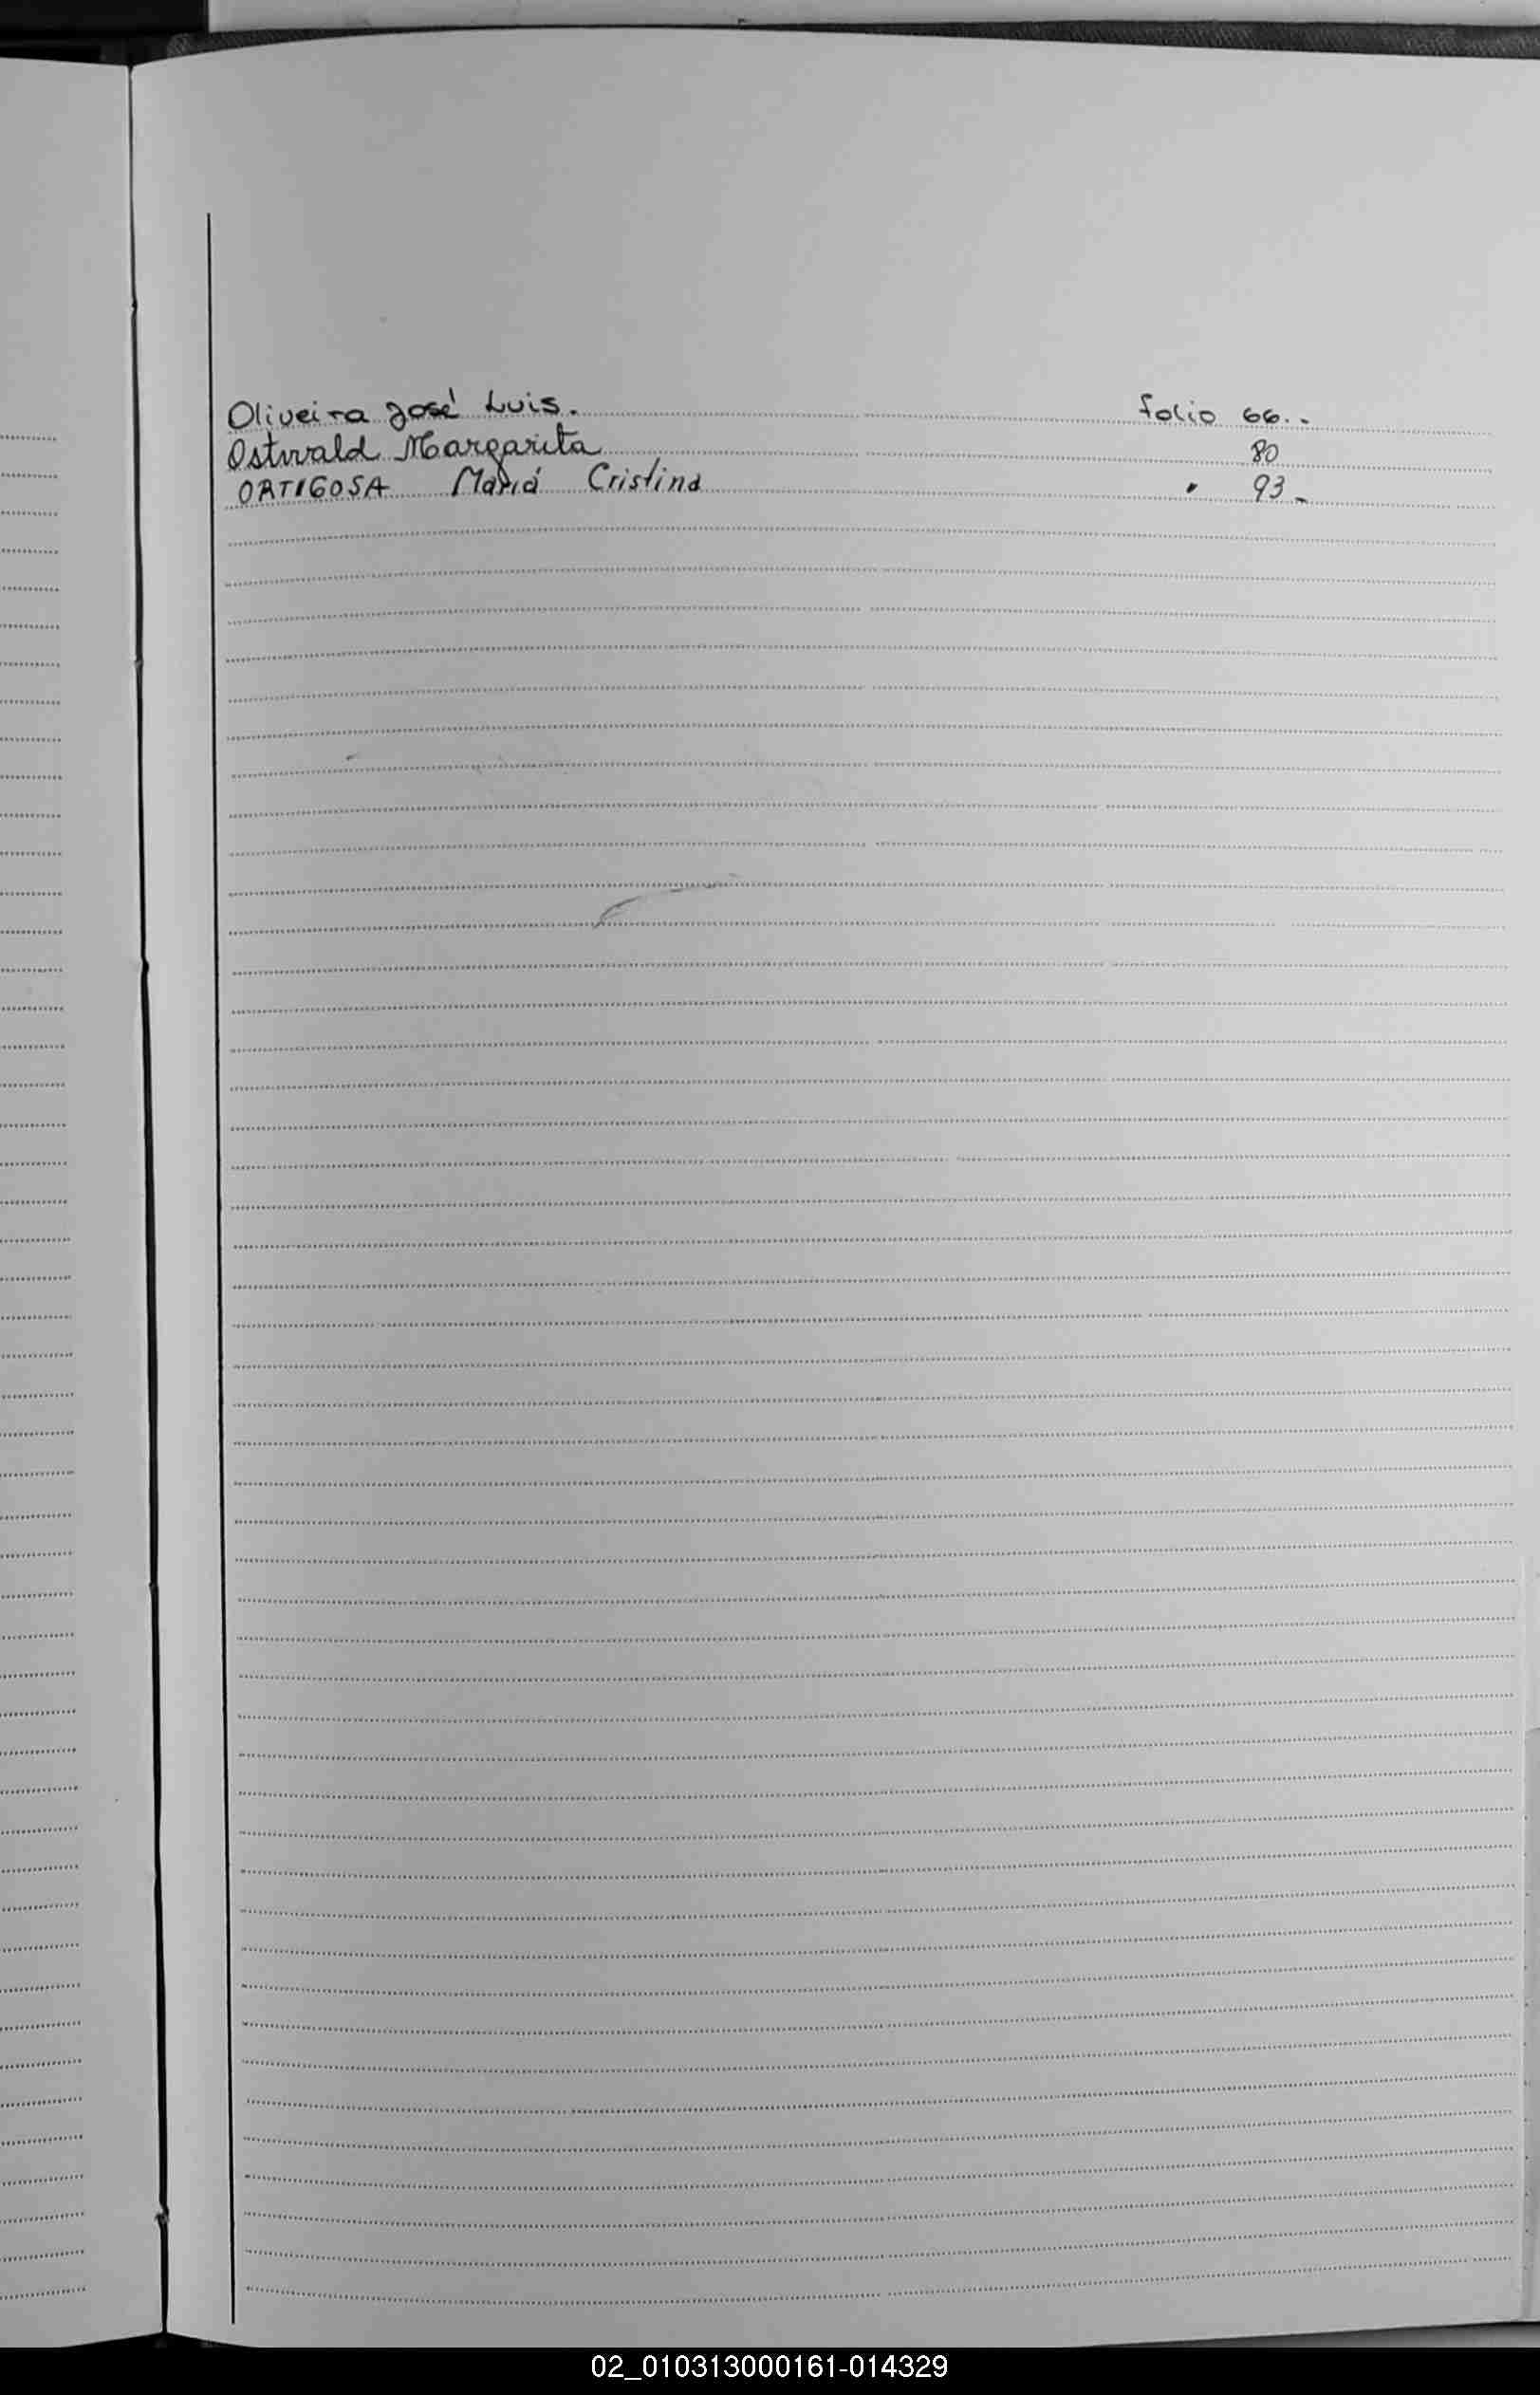 Oliveira José Luis. folio 66..
Ostwald Margarita 80
ORTIGOSA Mariá Cristina " 93_
02_010313000161-014329